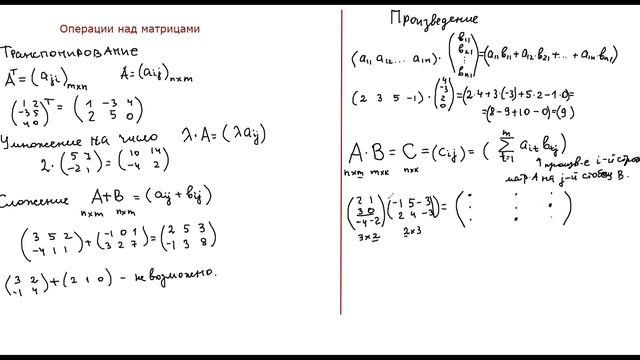 Операции над матрицами
Транспонирование
Aᵀ = (aⱼᵢ)ₘₓₙ   A = (aᵢⱼ)ₙₓₘ
(1 2; -3 5; 4 0)ᵀ = (1 -3 4; 2 5 0)
Умножение на число   λ·A = (λaᵢⱼ)
2·(5 7; -2 1) = (10 14; -4 2)
Сложение   A + B = (aᵢⱼ + bᵢⱼ)
n×m n×m
(3 5 2; -4 1 1) + (-1 0 1; 3 2 7) = (2 5 3; -1 3 8)
(3 2; -1 4) + (2 1 0) - невозможно.
Произведение
(a₁₁ a₁₂ ... a₁ₙ) · (b₁₁; b₂₁; ⋮; bₙ₁) = (a₁₁b₁₁ + a₁₂·b₂₁ + ... + a₁ₙ·bₙ₁)
(2 3 5 -1) · (4; -3; 2; 0) = (2·4 + 3·(-3) + 5·2 - 1·0) =
= (8 - 9 + 10 - 0) = (9)
A · B = C = (cᵢⱼ) = ( ∑ₜ₌₁ᵐ aᵢₜ bₜⱼ )
n×m m×k n×k
↑ произв-е i-й строки
матр. A на j-й столбец B.
(2 1; 3 0; -4 -2) (-1 5 -3; 2 4 -3) = (· · ·; · · ·; · · ·)
3×2   2×3